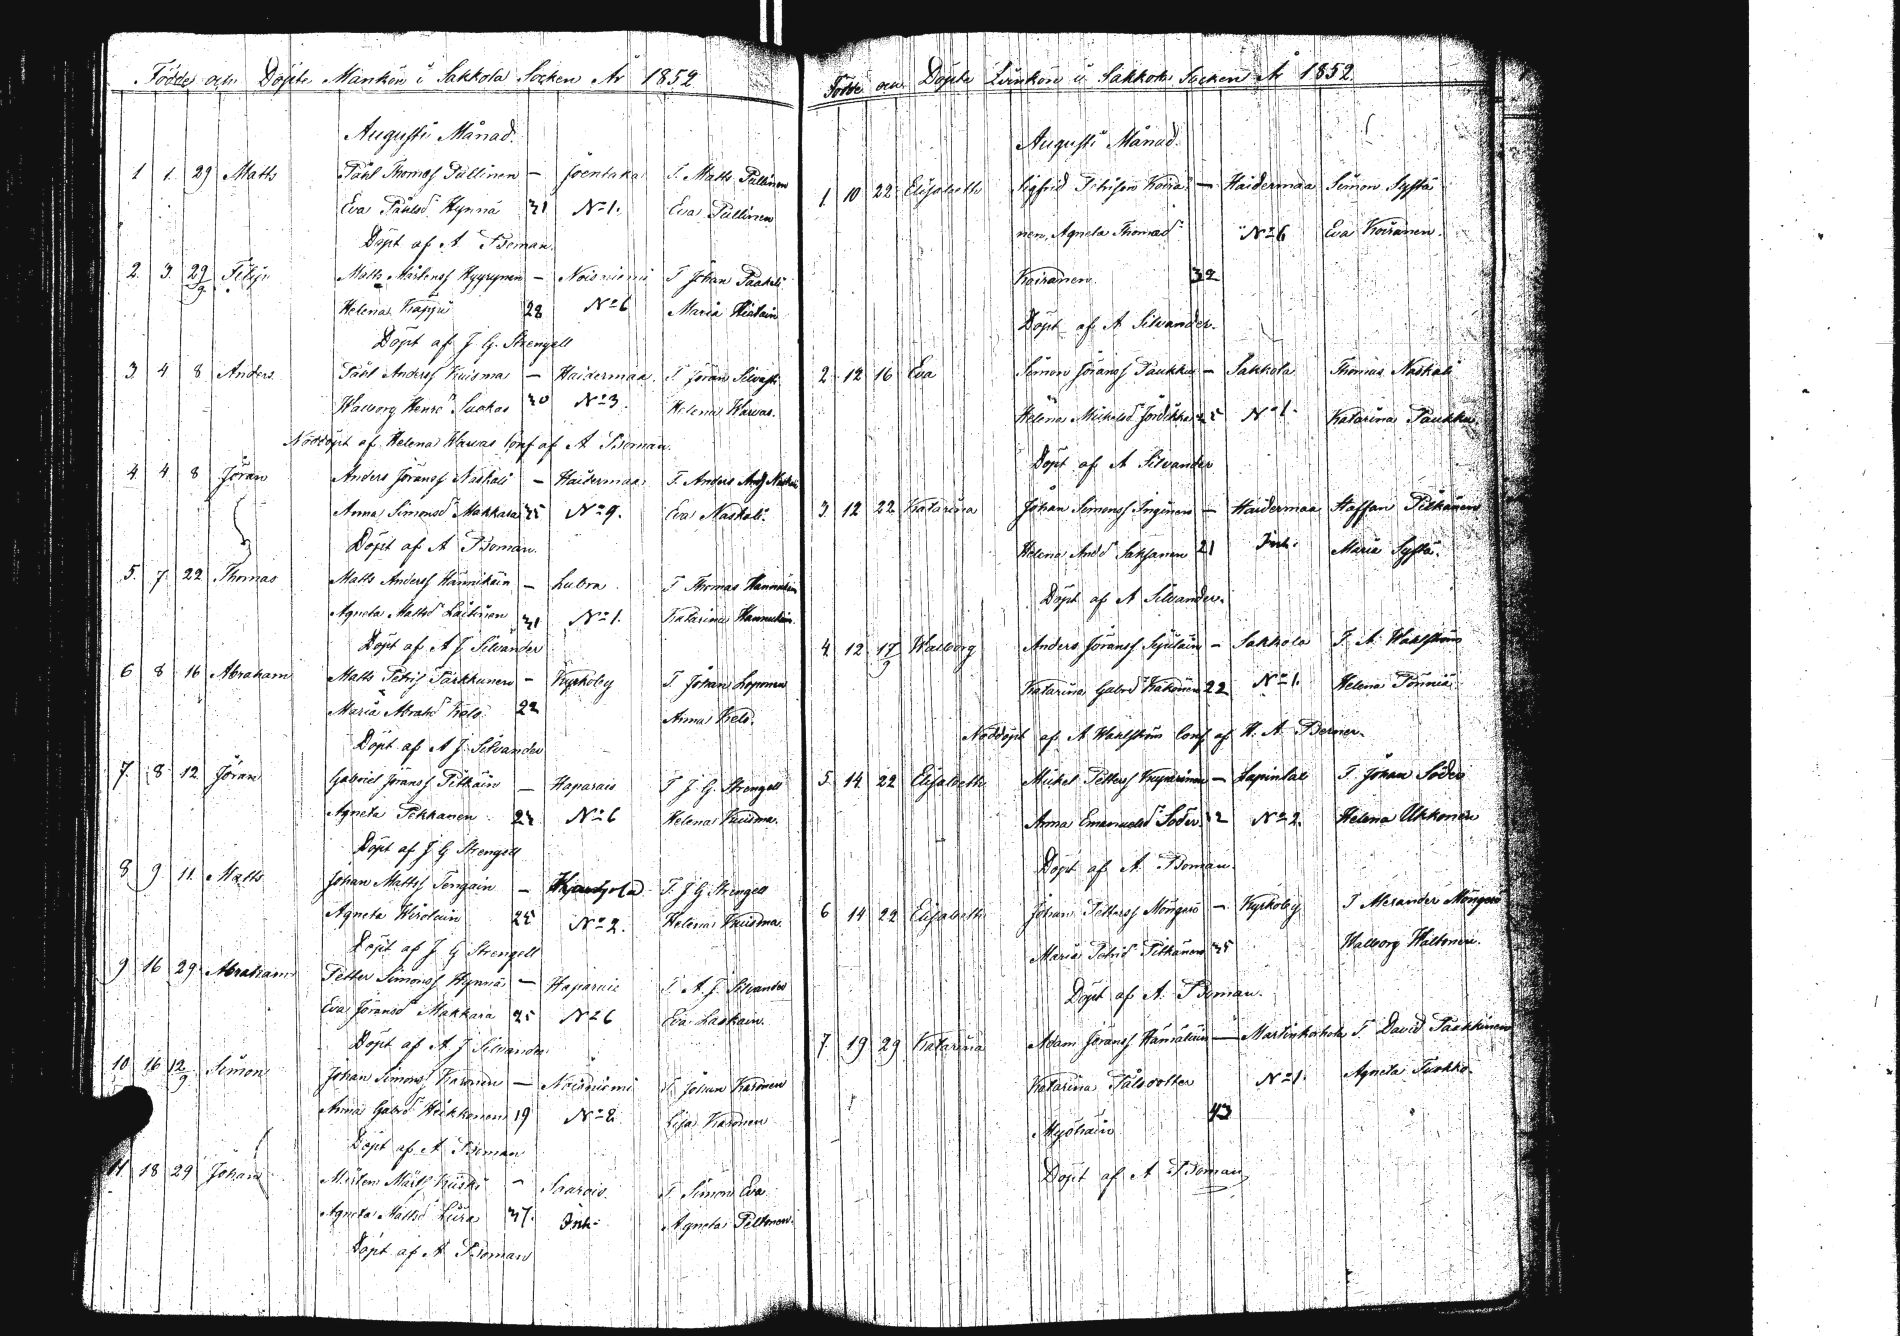 Födde och Döpte Mankön i Sakkola Socken År 1852
Augusti Månad.
1 1. 29 Matts Påhl Thomass Pullinen – Joentaka T. Matts Pullinen
Eva Påhlsd Hynnä 31 No 1. Eva Pullinen
Döpt af A Boman.
2. 3 29/9 Filip Matts Mårtenss Hyyrynen – Noisniemi T Johan Paakeli
Helena Käppi 28 No 6 Maria Hirolain
Döpt af J. G. Strengell
3. 4 8 Anders Påhl Anderss Kuisma – Haidermaa. T Jöran Silvast
Walborg Henrd Suokas 30 No 3. Helena Warvas.
Nöddöpt af Helena Warvas Conf af A Boman.
4 4 8 Jöran Anders Jöranss Naskali – Haidermaa T. Anders Ands Naskali
Anna Simonsd Makkara 35 No 9. Eva Naskali.
Döpt af A Boman.
5. 7. 22 Thomas Matts Anderss Hännikäin – Lubra T Thomas Hannukain
Agneta Mattsd Laitinen 31 No 1. Katarina Hannukain.
Döpt af A J Silvander
6 8 16 Abraham Matts Petris Tarkkunen – Kyrkoby T. Johan Loponen
Maria Abrahd Kelo 22 Anna Kelo.
Döpt af A J Silvander
7. 8 12 Jöran Gabriel Jöranss Pitkäin – Haparais T J. G. Strengell
Agneta Pekkanen 24 No 6 Helena Kuisma.
Döpt af J G Strengell
8 9 11. Matts Johan Mattss Tengain – T. J G Strengell
Agneta Hirolain 25 No 2. Helena Kuisma
Döpt af J G Strengell
9 16 29 Abraham Petter Simonss Hynnä – Haparais T. A. J. Silvander
Eva Jöransd Makkara 25 No 6 Eva Laskain.
Döpt af A J Silvander
10 16 12/9 Simon Johan Simonss Karonen – Noisniemi T. Johan Karonen
Anna Gabrd Heikkonen 19 No 2 Lisa Karonen
Döpt af A Boman
11. 18 29 Johan Mårten Mårtss Kiiski – Saarois. T. Simon Eva
Agneta Mattsd Liira 37. Inh: Agneta Peltonen.
Döpt af A Boman
Födde och Döpte Qvinkön i Sakkola Socken År 1852
Augusti Månad.
1 10 22 Elisabeth Sigfrid Petrison Koira – Haidermaa Simon Systä
nen, Agneta Thomad No 6 Eva Koiranen.
Koiranen. 32
Döpt af A Silvander.
2 12 16 Eva Simon Jöranss Paukku – Sakkola Thomas Naskali
Helena Michelsd Jordikka 25 No 1. Katarina Paukku.
Döpt af A Silvander
3. 12 22 Katarina Johan Simonss Inginen – Haidermaa Staffan Pitkänen
Helena Andd Saksanen 21 Inh: Maria Systä.
Döpt af A Silvander.
4 12 17/9 Walborg Anders Jöranss Sijulain – Sakkola T. A. Wahlström
Katarina Gabrd Kakonen 22 No 1. Helena Tönniä
Nöddöpt af A Wahlström Conf af H. A. Berner.
5. 14 22 Elisabeth Michel Petterss Kupparinen – Lapinlax T. Johan Söder
Anna Emanuelsd Söder 32 No 2. Helena Ukkonen
Döpt af A. Boman.
6 14 22 Elisabeth Johan Petterss Möngerö – Kyrkoby T Alexander Möngerö
Maria Petrid Pitkänen 35 Walborg Waltonen.
Döpt af A. Boman.
7. 19 29 Katarina Adam Jöranss Hämäläin – Martinkorkola T. David Paukkunen
Katarina Pålsdotter No 1. Agneta Turkko.
Myöhäin 43
Döpt af A Boman